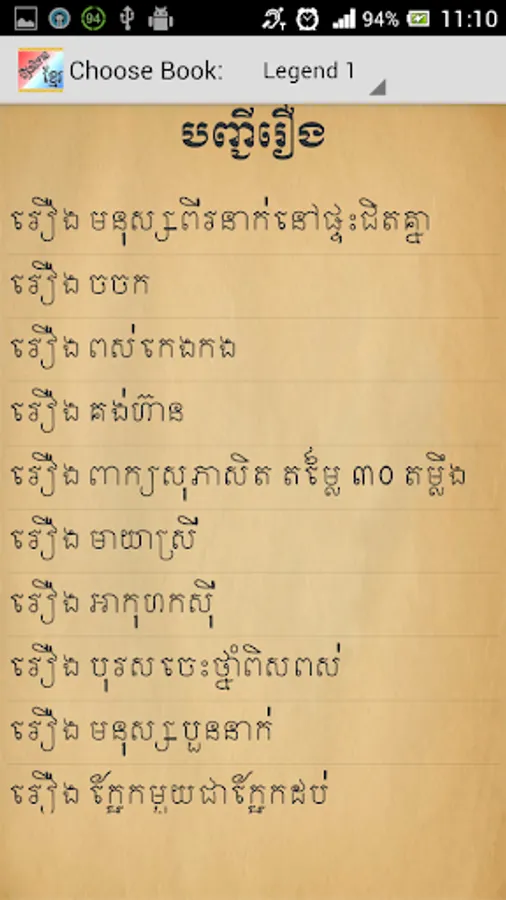 94 94% 11:10
Choose Book: Legend 1
បញ្ជីរឿង
រឿង មនុស្សពីរនាក់នៅផ្ទះជិតគ្នា
រឿង ចចក
រឿង ពស់កេងកង
រឿង គង់ហ៊ាន
រឿង ពាក្យសុភាសិត តម្លៃ ៣០ តម្លឹង
រឿង មាយាស្រី
រឿង អាកុហកស៊ី
រឿង បុរសចេះថ្នាំពិសពស់
រឿង មនុស្សបួននាក់
រឿង ក្អែកមួយជាក្អែកដប់